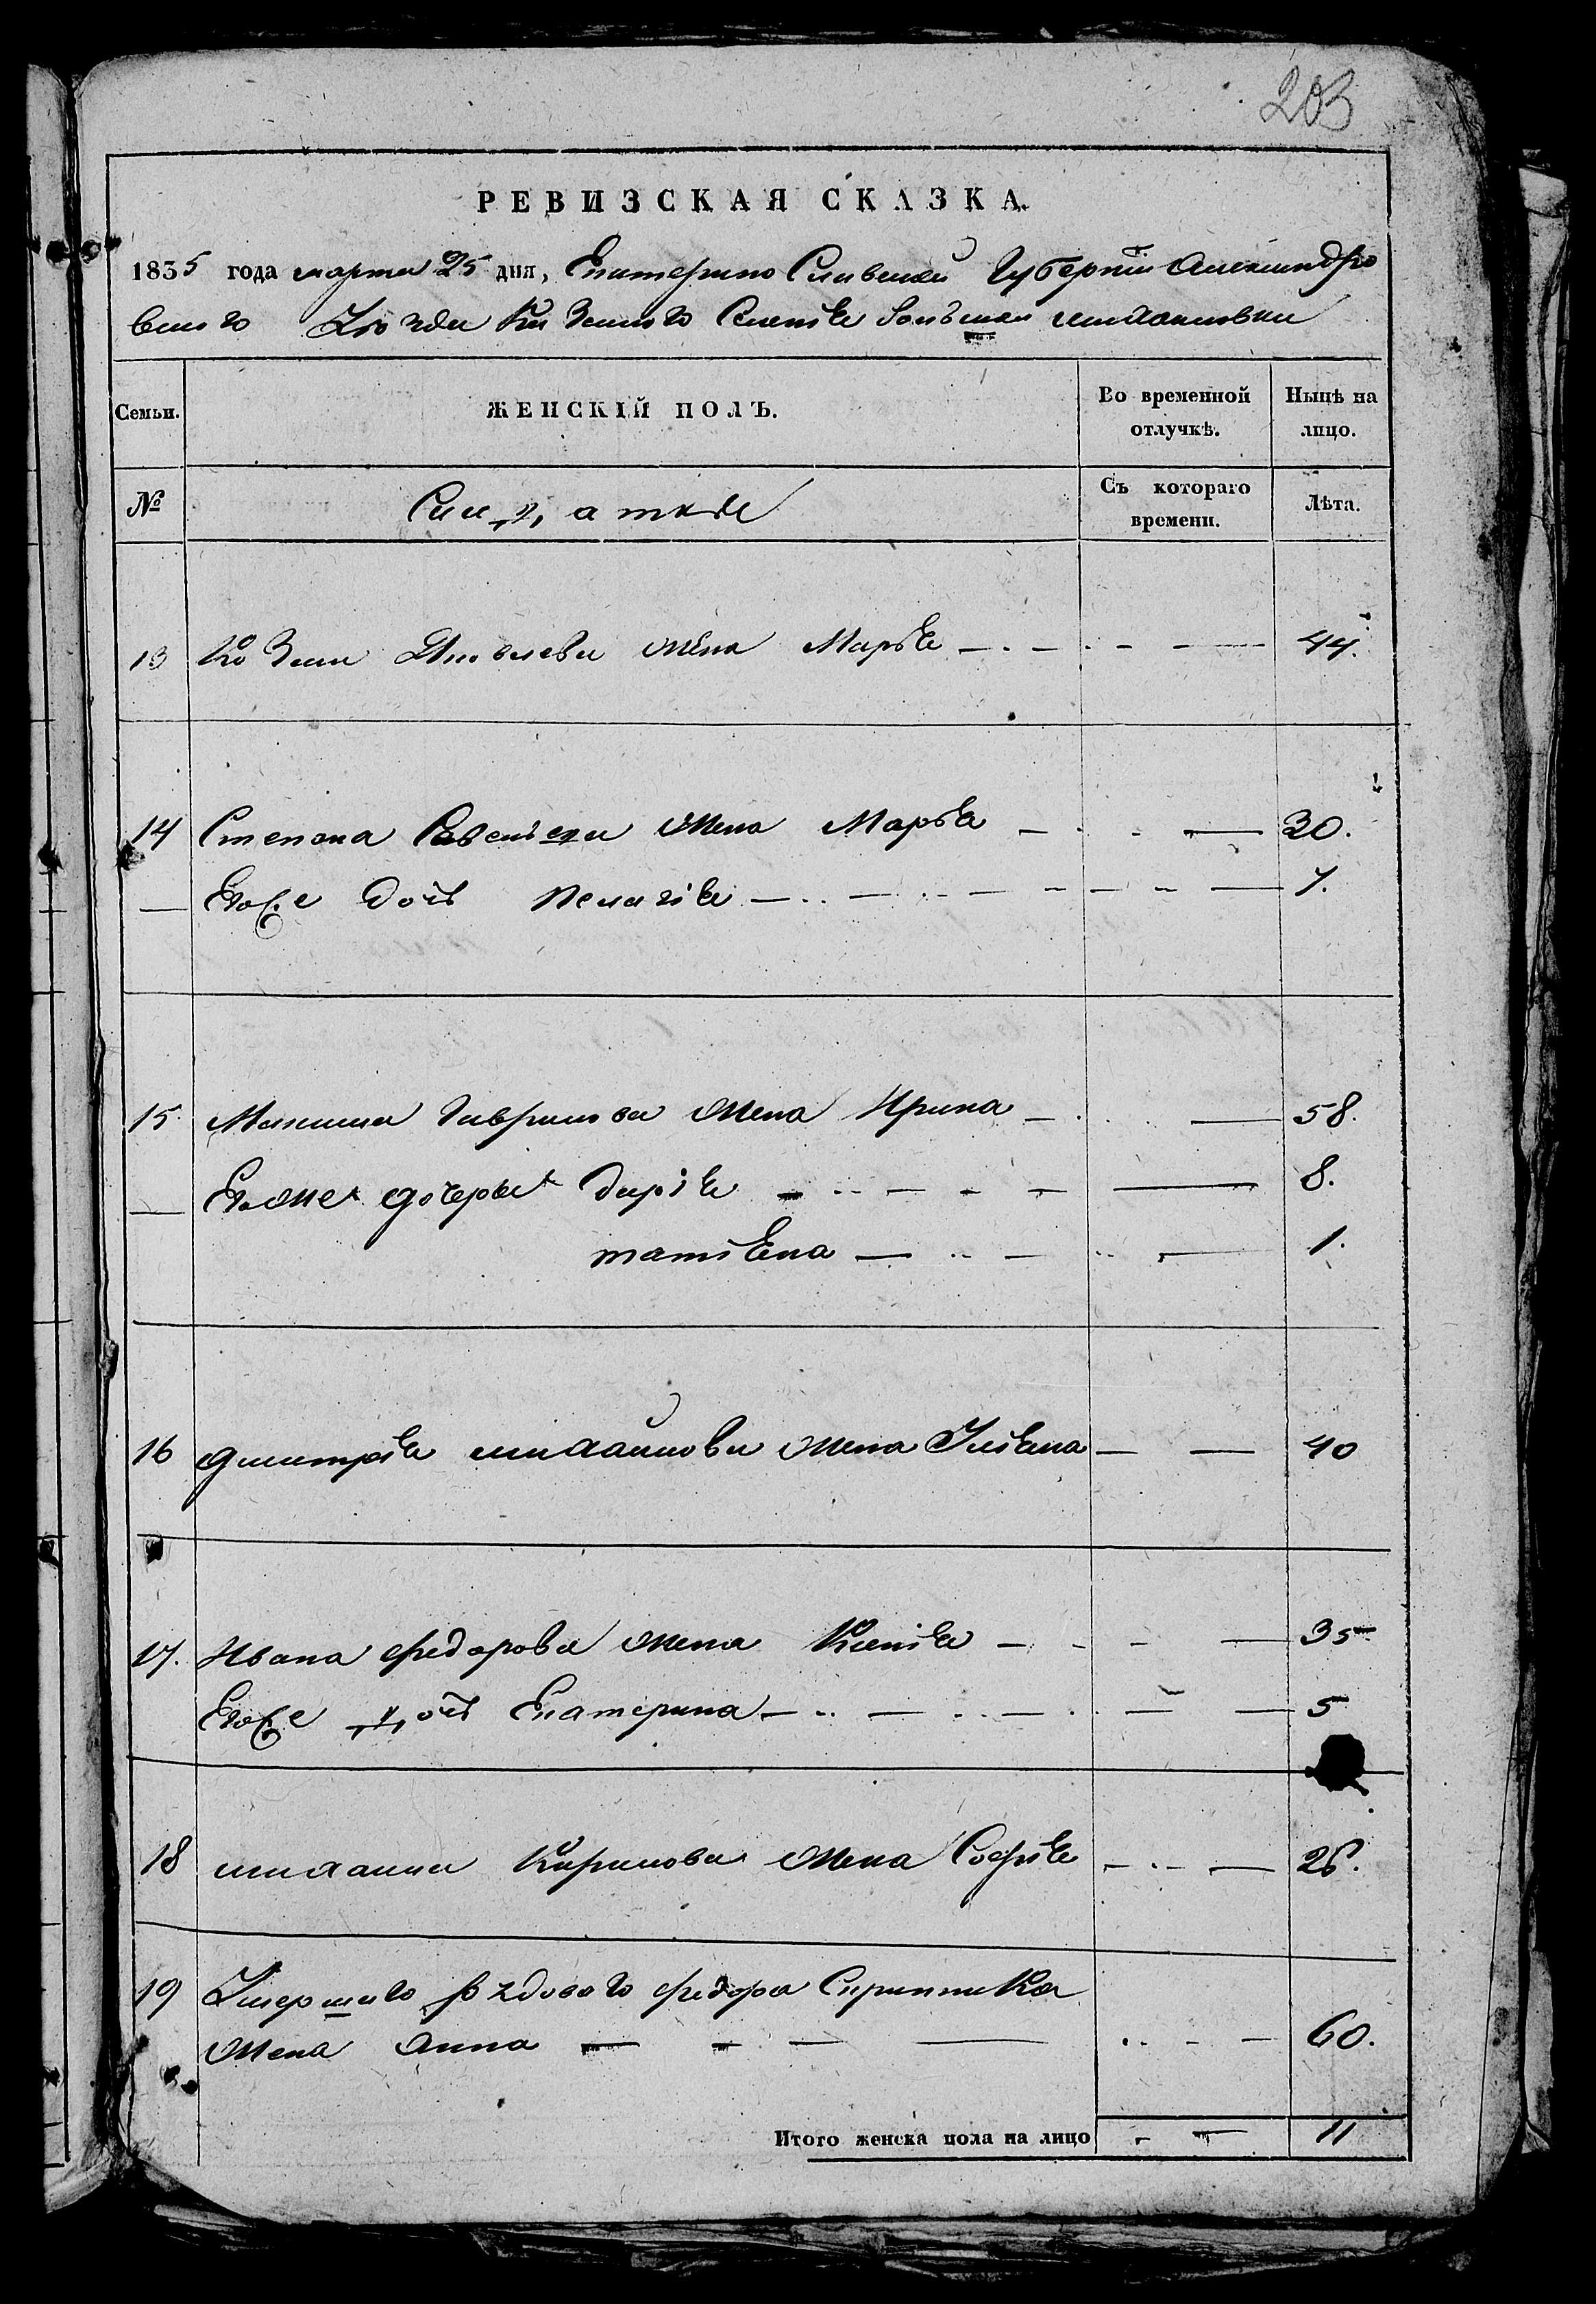 203
РЕВИЗСКАЯ СКАЗКА.
1835 года марта 25 дня, Екатерино Славской Губернии Александро
вскаго Уезда Казеннаго Селенія Большой михайловки
Семьи. ЖЕНСКІЙ ПОЛЪ. Во временной отлучкѣ. Нынѣ на лицо.
№ Съ котораго времени. Лѣта.
13 Козми Яковлева жена Марья 44.
14 Степана жена Марья 30.
Его же дочь пелагія 7.
15. Максима Гаврилова жена Ирина 58.
Его же дочерья дарія 8.
татіяна 1.
16 дмитрія михайлова жена Уліяна 40
17. Ивана федорова жена Ксенія 35
Его же дочь Екатерина 5
18 михаила Кирилова жена Софія 26.
19 Умершаго рядоваго федора Скрипника
жена анна 60.
Итого женска пола на лицо 11